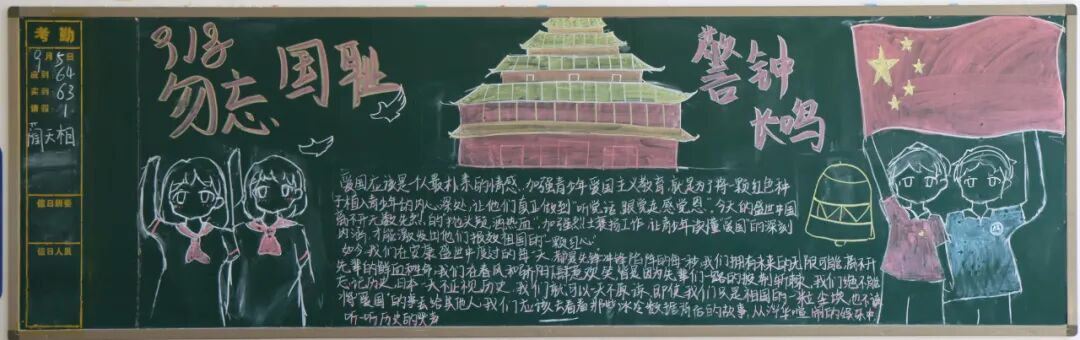 考勤
9月5日
应到 64
实到 63
请假 1
天相
值日班委
值日人员
918
勿忘国耻
警钟
长鸣
爱国应该是个人最朴素的情感,加强青少年爱国主义教育,就是为了将一颗红色种
子植入青少年的内心深处,让他们真正做到“听党话、跟党走、感党恩”,今天的盛世中国
离不开无数先烈的抛头颅、洒热血”,加强烈士褒扬工作,让青少年读懂爱国的深刻
内涵,才能激发出他们报效祖国的一颗红心。
如今,我们在安康盛世中度过的每一天,都是先辈冲锋陷阵的每秒,我们拥有未来的无限可能,离不开
先辈的鲜血和生命,我们在春风和骄阳里肆意欢笑,皆是因为先辈们一路的披荆斩棘,我们绝不能
忘记历史,日本一天不正视历史,我们就一天不原谅,即使我们只是祖国的一粒尘埃,也不该
将“爱国”的事丢给其他人,我们应该去看看那些冰冷数据背后的故事,从浮华喧闹的娱乐中,
听一听历史的哭声